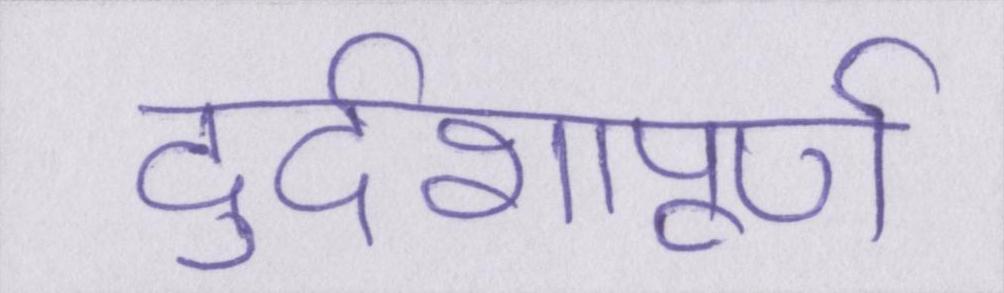 दुर्दशापूर्ण